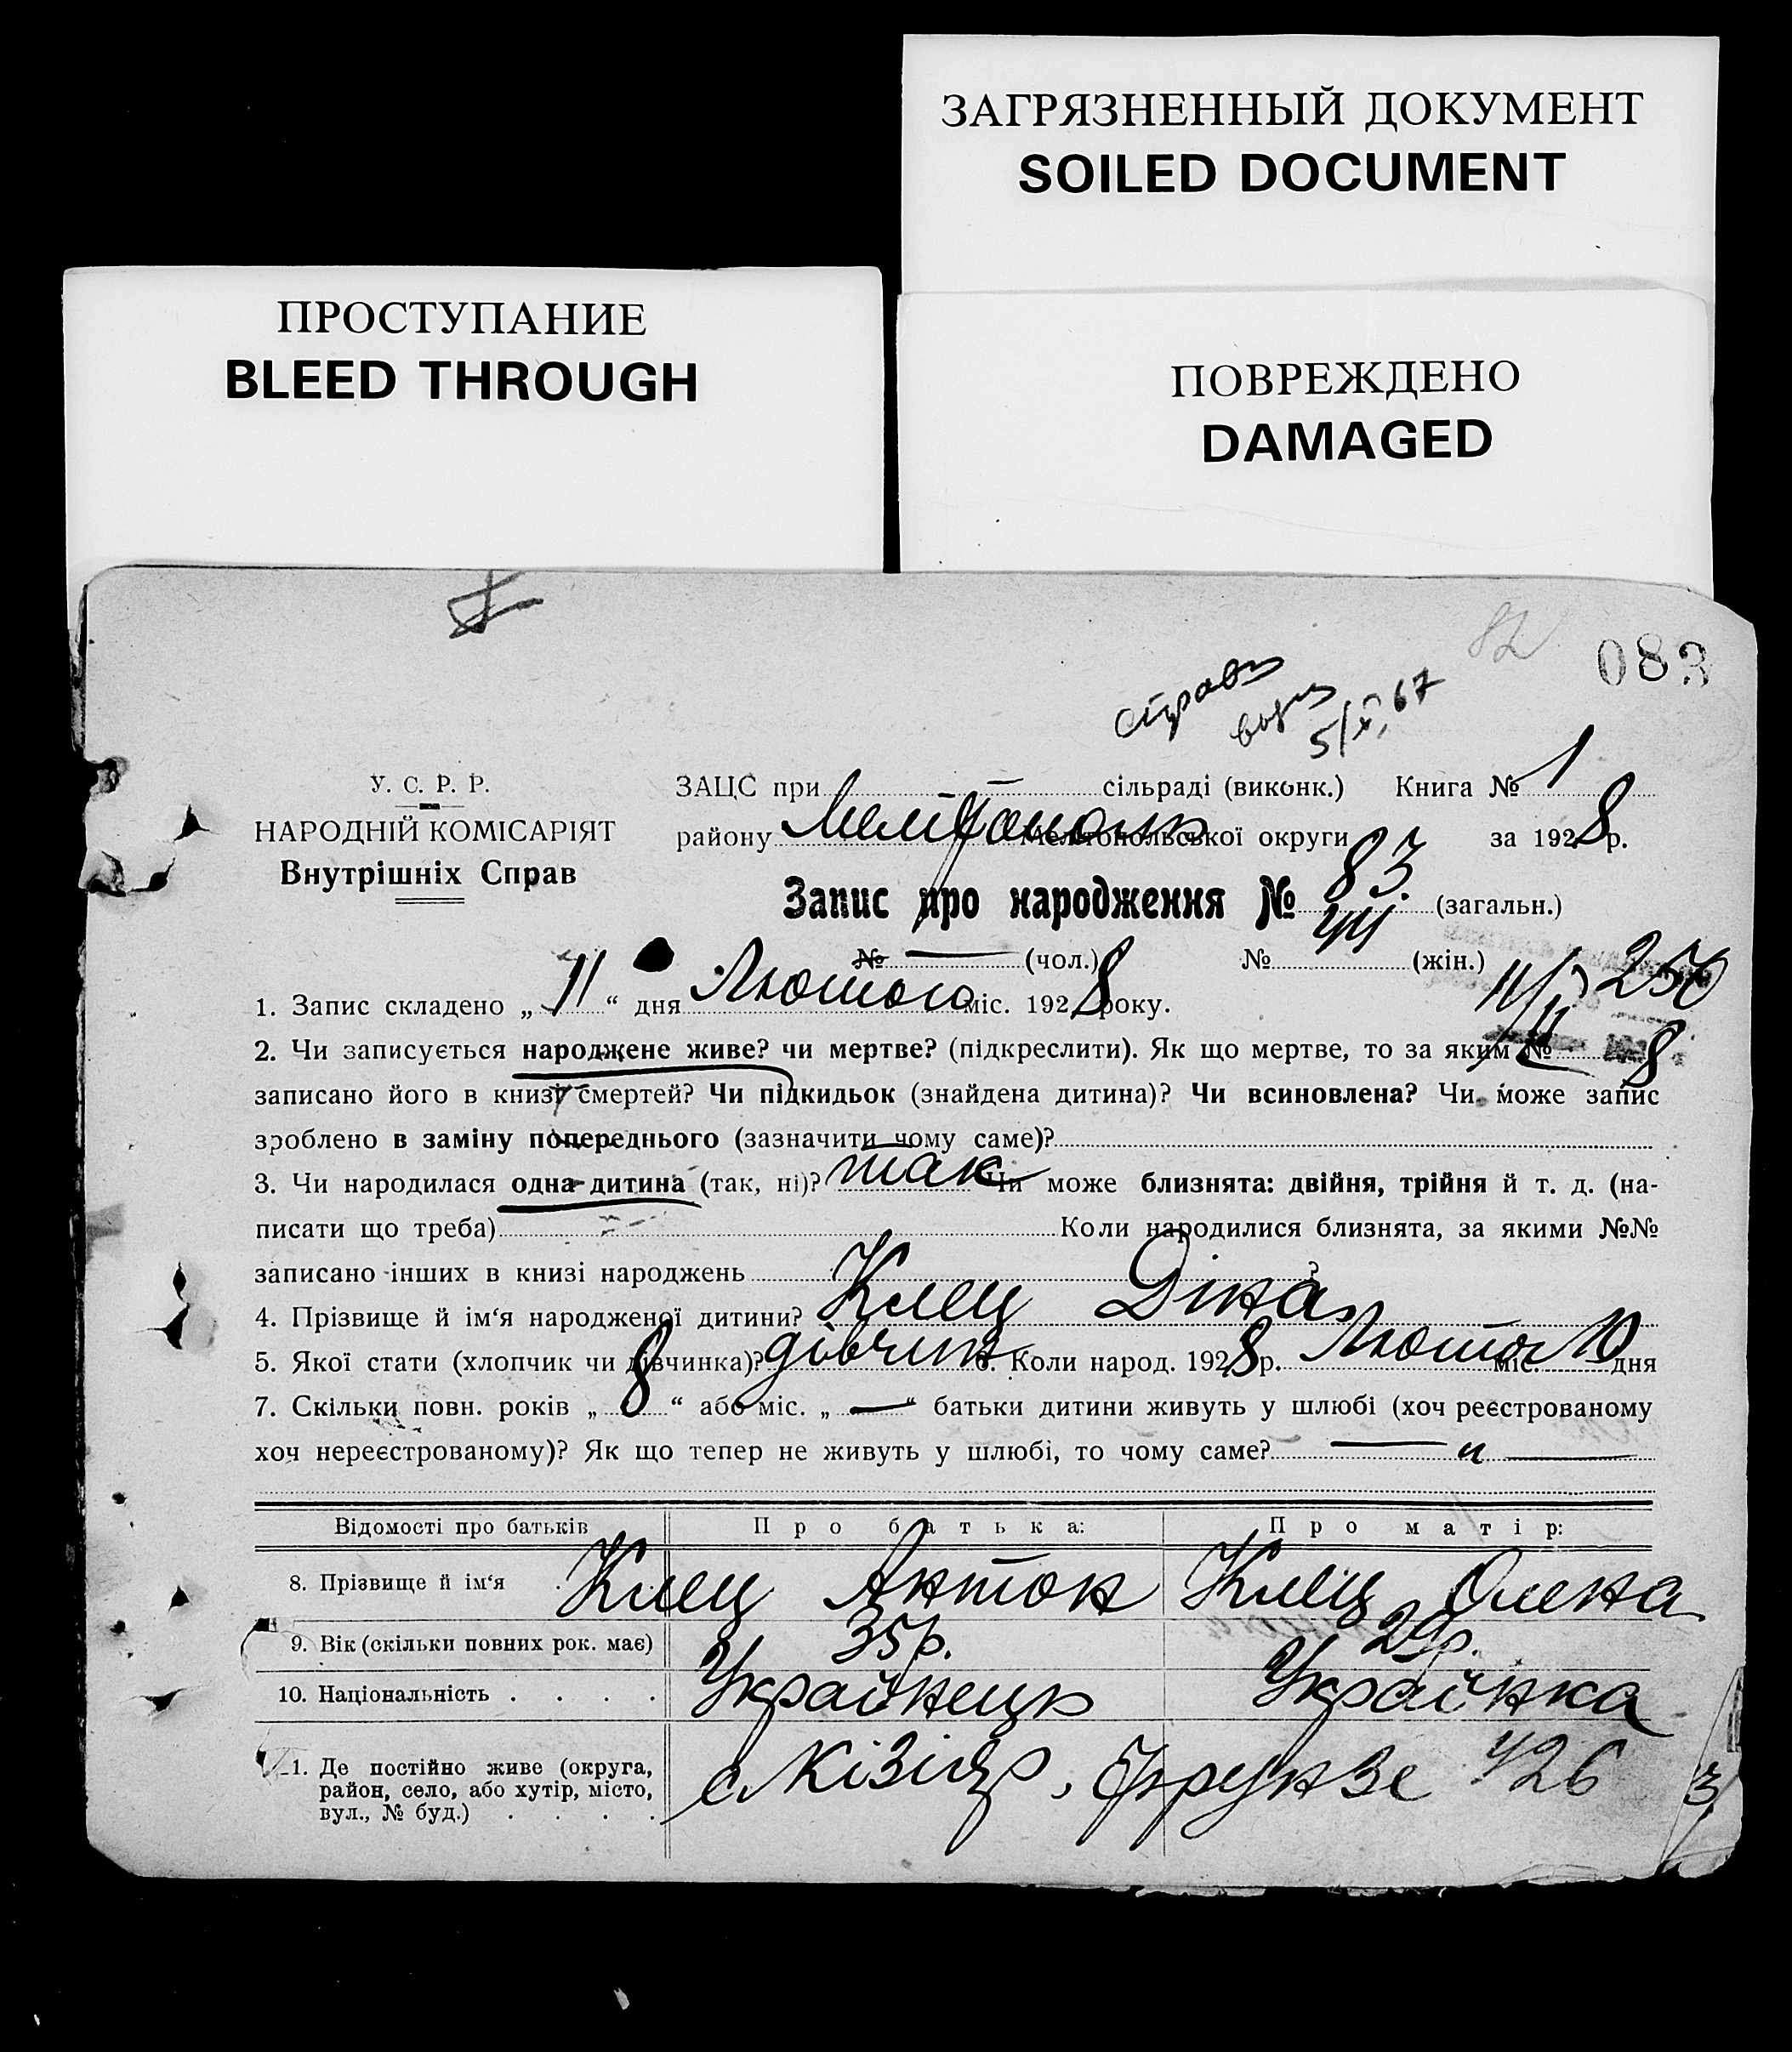 ЗАГРЯЗНЕННЫЙ ДОКУМЕНТ
SOILED DOCUMENT
ПРОСТУПАНИЕ
BLEED THROUGH
ПОВРЕЖДЕНО
DAMAGED
82
083
5/X, 67
У. С. Р. Р.
НАРОДНІЙ КОМІСАРІЯТ
Внутрішніх Справ
ЗАЦС при — сільраді (виконк.) Книга № 1
району Мелітополь Мелітопольської округи за 1928 р.
Запис про народження № 83 (загальн.)
№ — (чол.) № 44 (жін.)
250
1. Запис складено „ 11 “ дня Лютого міс. 1928 року.
2. Чи записується народжене живе? чи мертве? (підкреслити). Як що мертве, то за яким №
записано його в книзі смертей? Чи підкидьок (знайдена дитина)? Чи всиновлена? Чи може запис
зроблено в заміну попереднього (зазначити чому саме)?
3. Чи народилася одна дитина (так, ні)? так Чи може близнята: двійня, трійня й т. д. (на-
писати що треба) Коли народилися близнята, за якими №№
записано інших в книзі народжень ?
4. Прізвище й ім‘я народженої дитини? Клец Діна
5. Якої стати (хлопчик чи дівчинка)? дівчин 6. Коли народ. 1928 р. Лютог міс. 10 дня
7. Скільки повн. років „ 8 “ або міс. „ — “ батьки дитини живуть у шлюбі (хоч реєстрованому
хоч нереєстрованому)? Як що тепер не живуть у шлюбі, то чому саме? — „ —
Відомості про батьків Про батька: Про матір:
8. Прізвище й ім‘я Клец Антон Клец Олена
9. Вік (скільки повних рок. має) 35р. 29р.
10. Національність . . . . Украйнець Украйнка
11. Де постійно живе (округа,
район, село, або хутір, місто,
вул., № буд.) . . . . с Кізіяр, Фрунзе 426